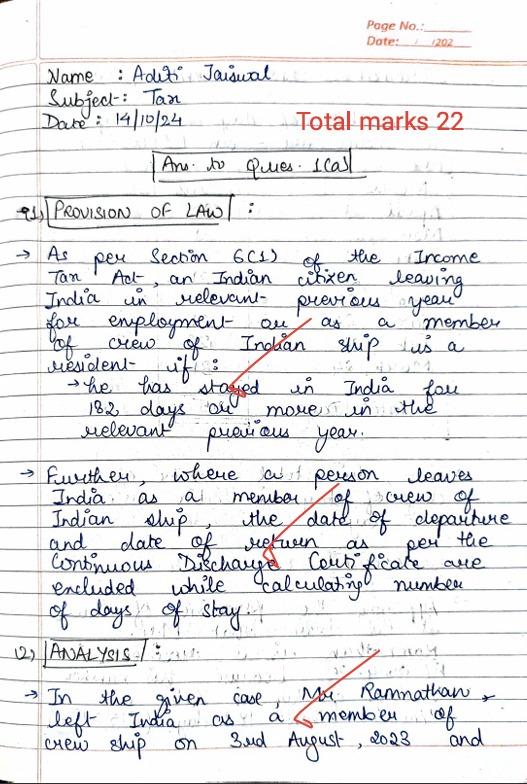 Page No.:
Date: / /202
Name : Aditi Jaiswal
Subject : Tax
Date : 14/10/24
Total marks 22
Ans. to Ques. 1(a)
1) PROVISION OF LAW :
→ As per Section 6(1) of the Income
Tax Act, an Indian citizen leaving
India in relevant previous year
for employment or as a member
of crew of Indian ship is a
resident if :
→ he has stayed in India for
182 days or more in the
relevant previous year.
→ Further, where a person leaves
India as a member of crew of
Indian ship, the date of departure
and date of return as per the
Continuous Discharge Certificate are
excluded while calculating number
of days of stay.
2) ANALYSIS :
→ In the given case, Mr. Ramnathan
left India as a member of
crew ship on 3rd August, 2023 and